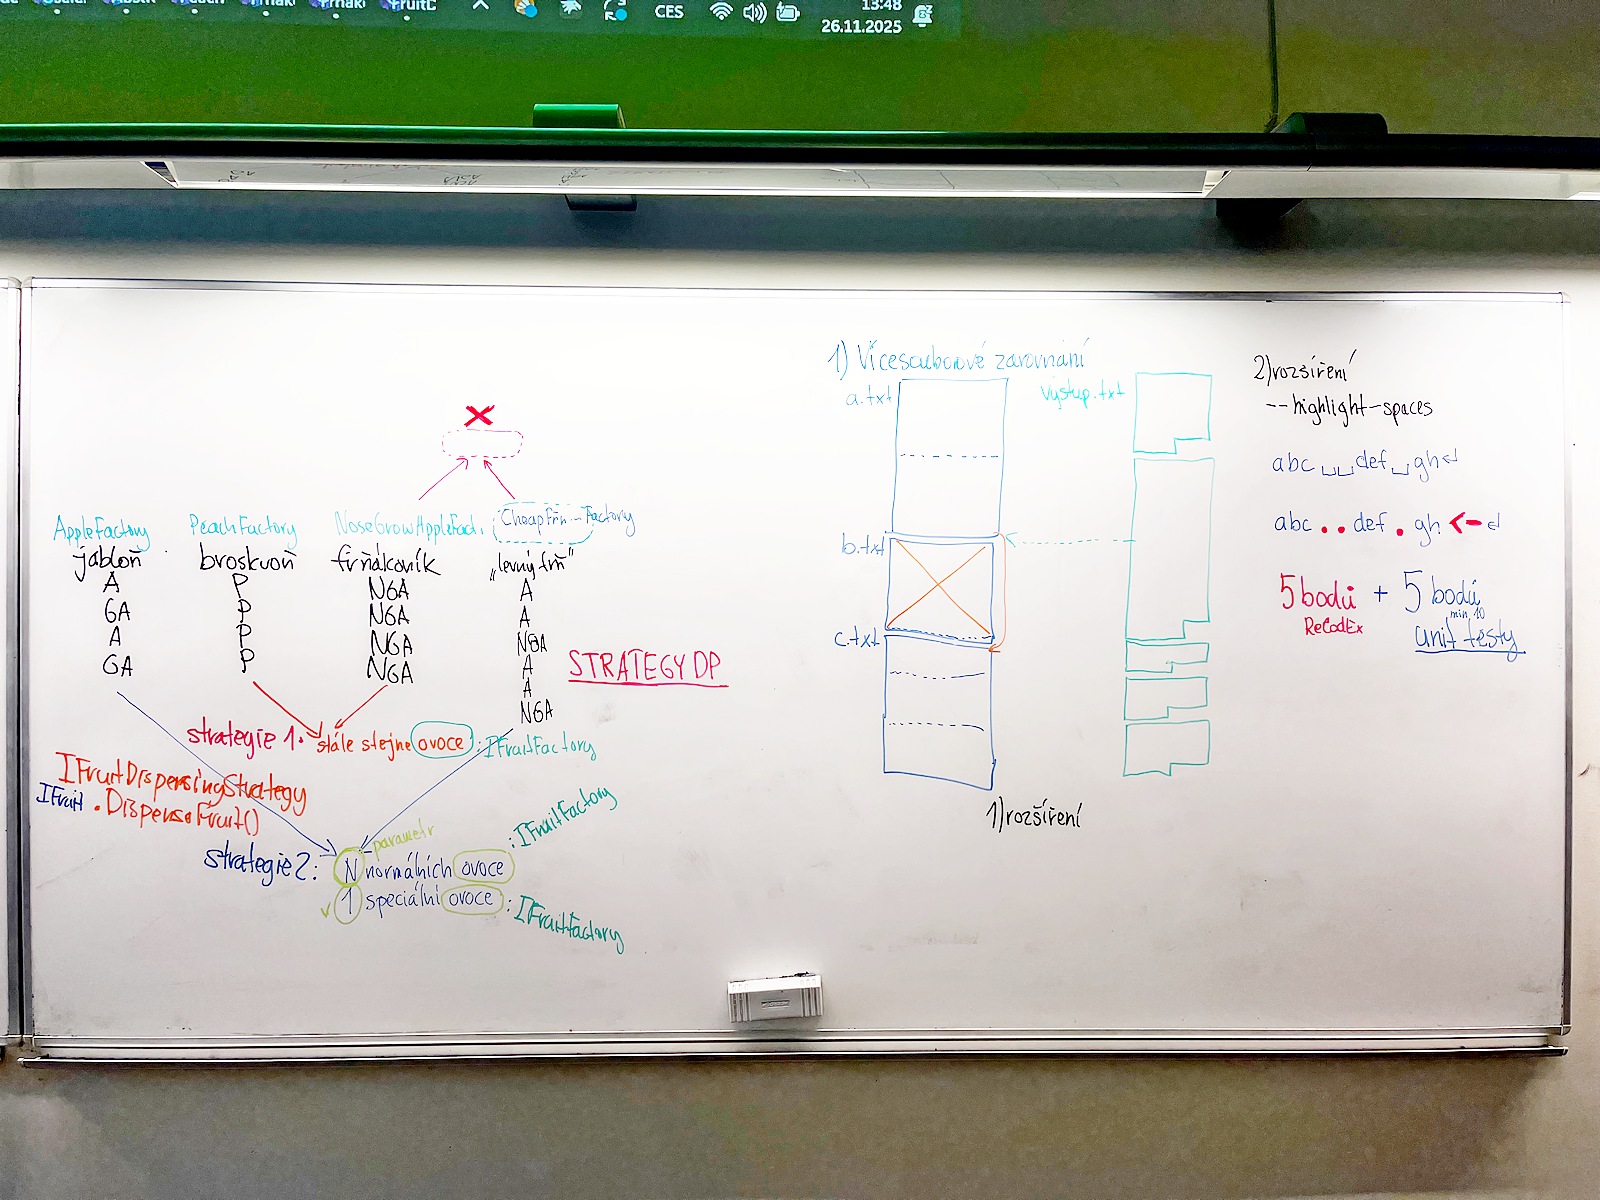 CES
13:48
26.11.2025
AppleFactory
jabloň
A
GA
A
GA
PeachFactory
broskvoň
P
P
P
P
NoseGrowAppleFact.
frňákovník
NGA
NGA
NGA
NGA
CheapFrň...Factory
„levný frň"
A
A
NGA
A
A
NGA
STRATEGY DP
strategie 1: stále stejné ovoce : IFruitFactory
IFruitDispensingStrategy
IFruit .DispenseFruit()
parametr
strategie 2: N normálních ovoce : IFruitFactory
1 speciální ovoce : IFruitFactory
1) Vícesouborové zarovnání
a.txt
výstup.txt
b.txt
c.txt
1) rozšíření
2) rozšíření
--highlight-spaces
abc␣␣def␣gh↵
abc..def.gh<-↵
5 bodů + 5 bodů
ReCodEx
min 10
unit testy